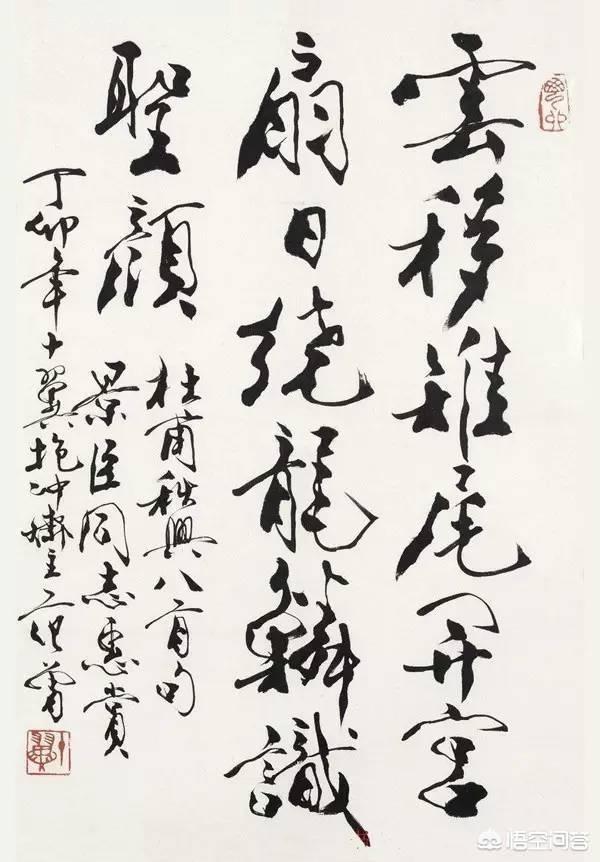 雲移雉尾開宮
扇日繞龍鱗識
聖顔
杜甫秋興八首句
景臣同志惠賞
丁卯年十翼抱冲齋主范曾
十翼
悟空问答